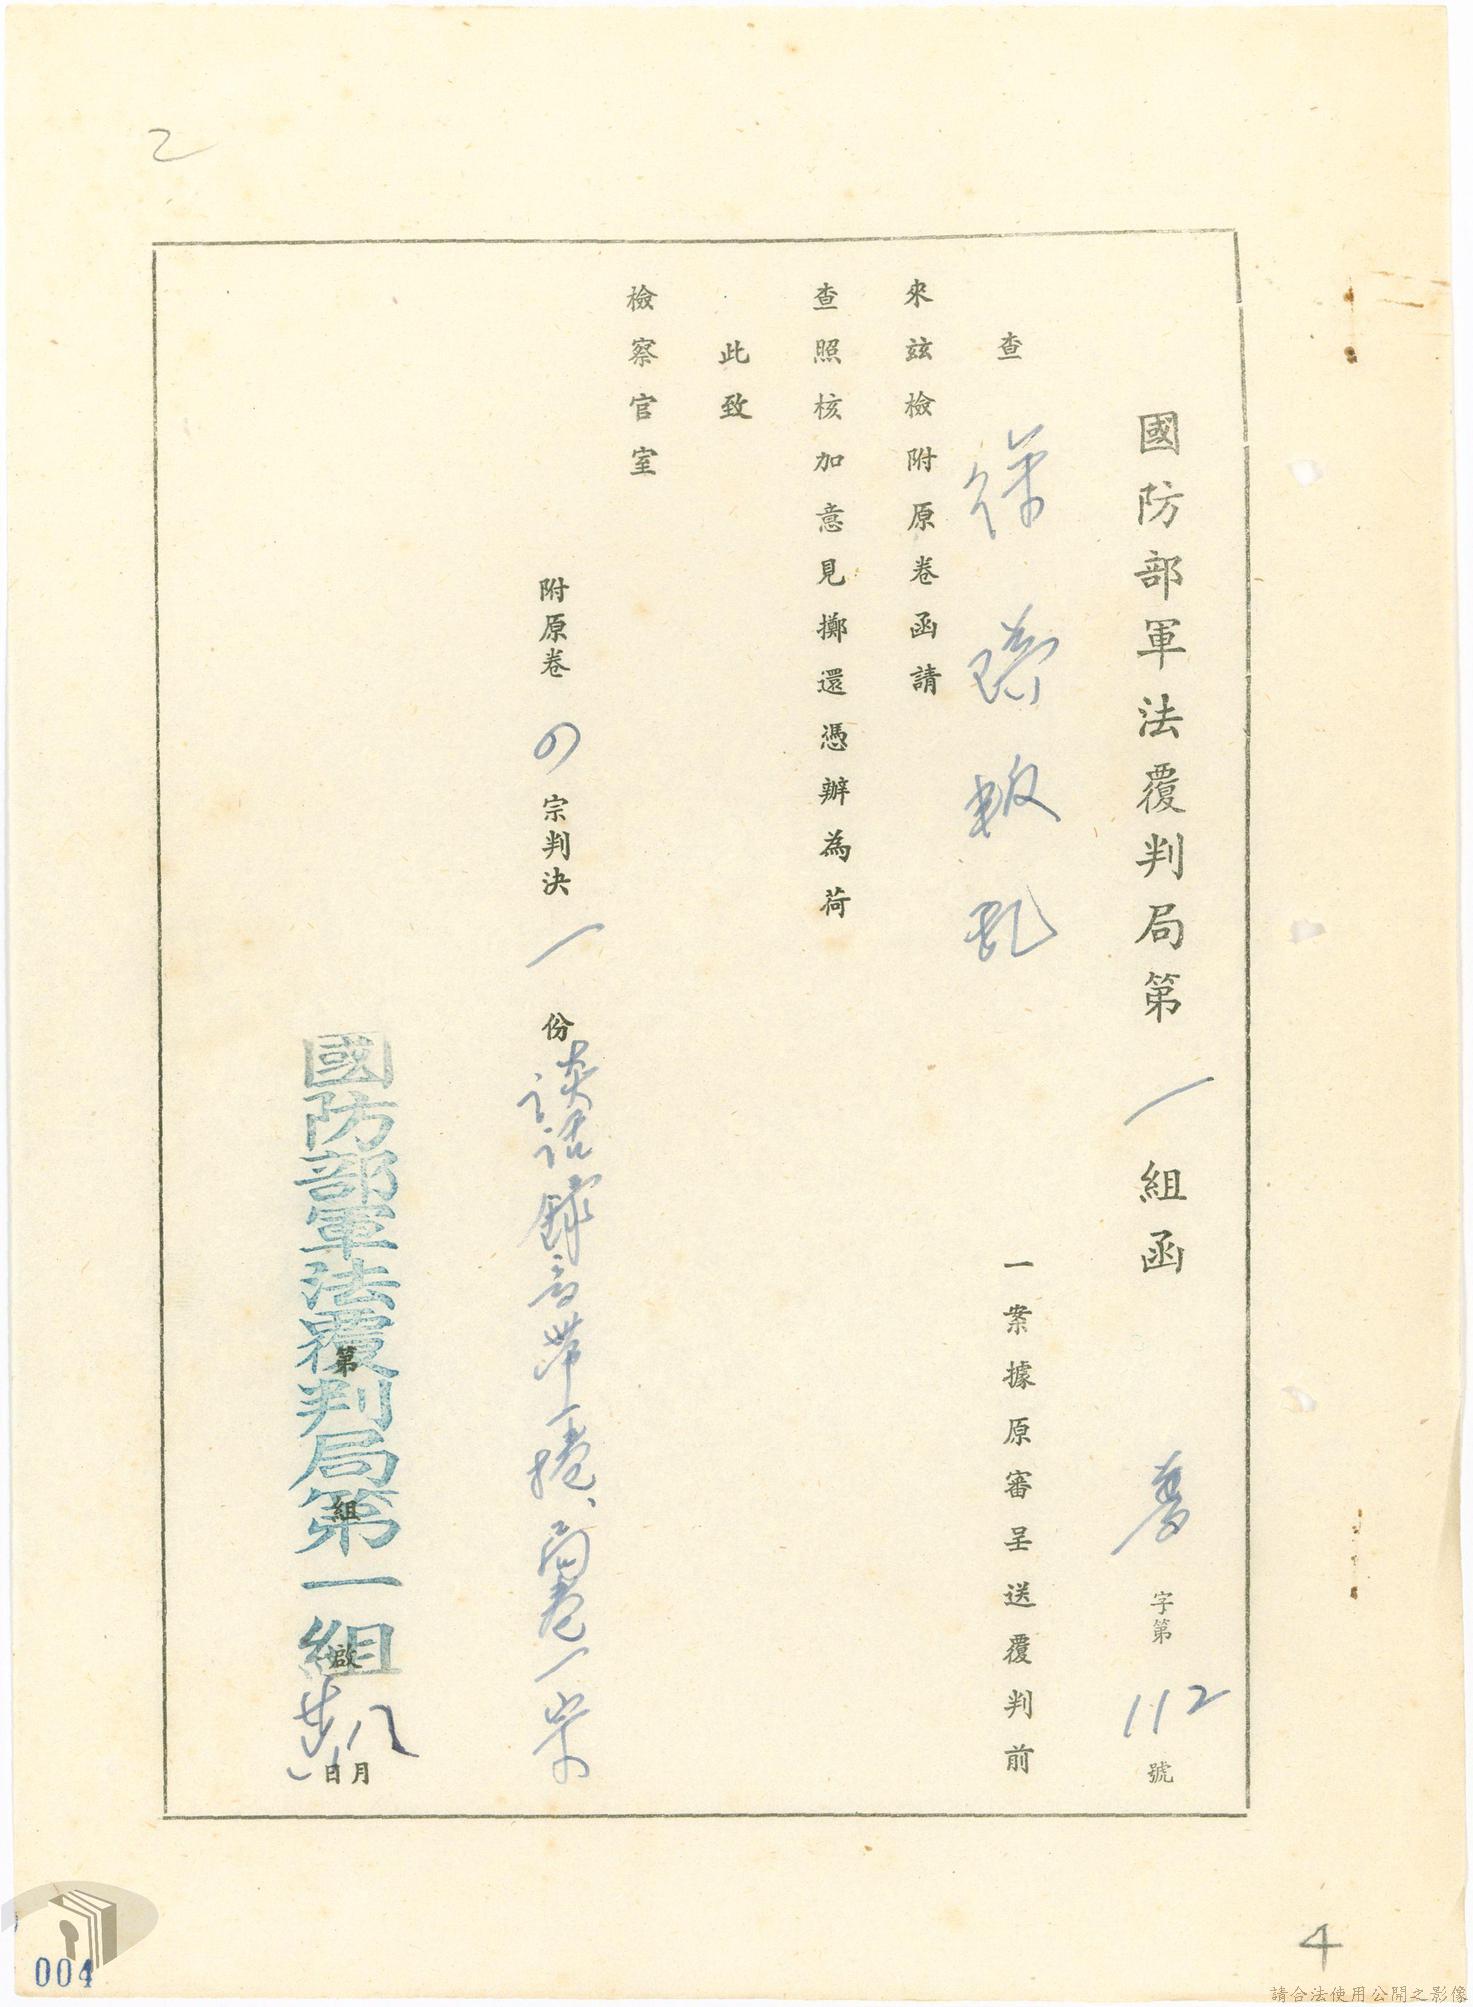 2
國防部軍法覆判局第一組函 字第112號
查 叛亂 一案據原審呈送覆判前
來茲檢附原卷函請
查照核加意見擲還憑辦為荷
此致
檢察官室
附原卷の宗判決一份談話錄音帶一捲、局卷一宗
國防部軍法覆判局第一組
第 組 啟
八月 日
4
004
請合法使用公開之影像